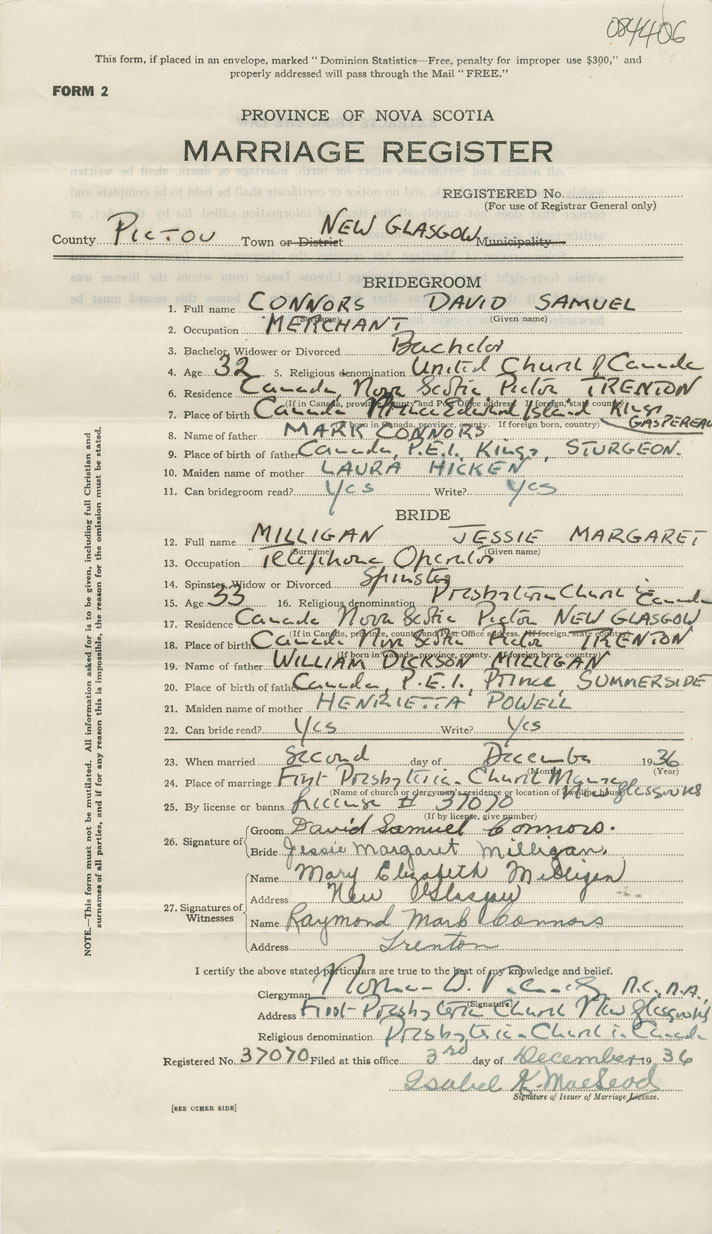 084406
This form, if placed in an envelope, marked "Dominion Statistics—Free, penalty for improper use $300," and
properly addressed will pass through the Mail "FREE."
FORM 2
PROVINCE OF NOVA SCOTIA
MARRIAGE REGISTER
REGISTERED No.
(For use of Registrar General only)
County PICTOU Town or District NEW GLASGOW Municipality
BRIDEGROOM
1. Full name CONNORS DAVID SAMUEL
(Surname) (Given name)
2. Occupation MERCHANT
3. Bachelor, Widower or Divorced Bachelor
4. Age 32 5. Religious denomination United Church of Canada
6. Residence Canada, Nova Scotia Pictou TRENTON
(If in Canada, province, county and Post Office address. If foreign, state country)
7. Place of birth Canada Prince Edward Island Kings GASPEREAU
(If born in Canada, province, county. If foreign born, country)
8. Name of father MARK CONNORS
9. Place of birth of father Canada, P.E.I., Kings, STURGEON.
10. Maiden name of mother LAURA HICKEN
11. Can bridegroom read? Yes Write? Yes
BRIDE
12. Full name MILLIGAN JESSIE MARGARET
(Surname) (Given name)
13. Occupation Telephone Operator
14. Spinster, Widow or Divorced Spinster
15. Age 33 16. Religious denomination Presbyterian Church in Canada
17. Residence Canada Nova Scotia Pictou NEW GLASGOW
(If in Canada, province, county and Post Office address. If foreign, state country)
18. Place of birth Canada Nova Scotia Pictou TRENTON
(If born in Canada, province, county. If foreign born, country)
19. Name of father WILLIAM DICKSON MILLIGAN
20. Place of birth of father Canada, P.E.I., Prince, SUMMERSIDE
21. Maiden name of mother HENRIETTA POWELL
22. Can bride read? Yes Write? Yes
23. When married Second day of December 1936
(Month) (Year)
24. Place of marriage First Presbyterian Church Manse New Glasgow NS
(Name of church or clergyman's residence or location of
25. By license or banns License # 37070
(If by license, give number)
26. Signature of Groom David Samuel Connors.
Bride Jessie Margaret Milligan.
27. Signatures of Witnesses
Name Mary Elizabeth Milligan
Address New Glasgow
Name Raymond Mark Connors
Address Trenton
I certify the above stated particulars are true to the best of my knowledge and belief.
Clergyman Norman D. M.C., M.A.
(Signature)
Address First Presbyterian Church New Glasgow NS
Religious denomination Presbyterian Church in Canada
Registered No. 37070 Filed at this office 3rd day of December 1936
Isabel K. MacLeod
Signature of Issuer of Marriage License.
[SEE OTHER SIDE]
NOTE.—This form must not be mutilated. All information asked for is to be given, including full Christian and
surnames of all parties, and if for any reason this is impossible, the reason for the omission must be stated.